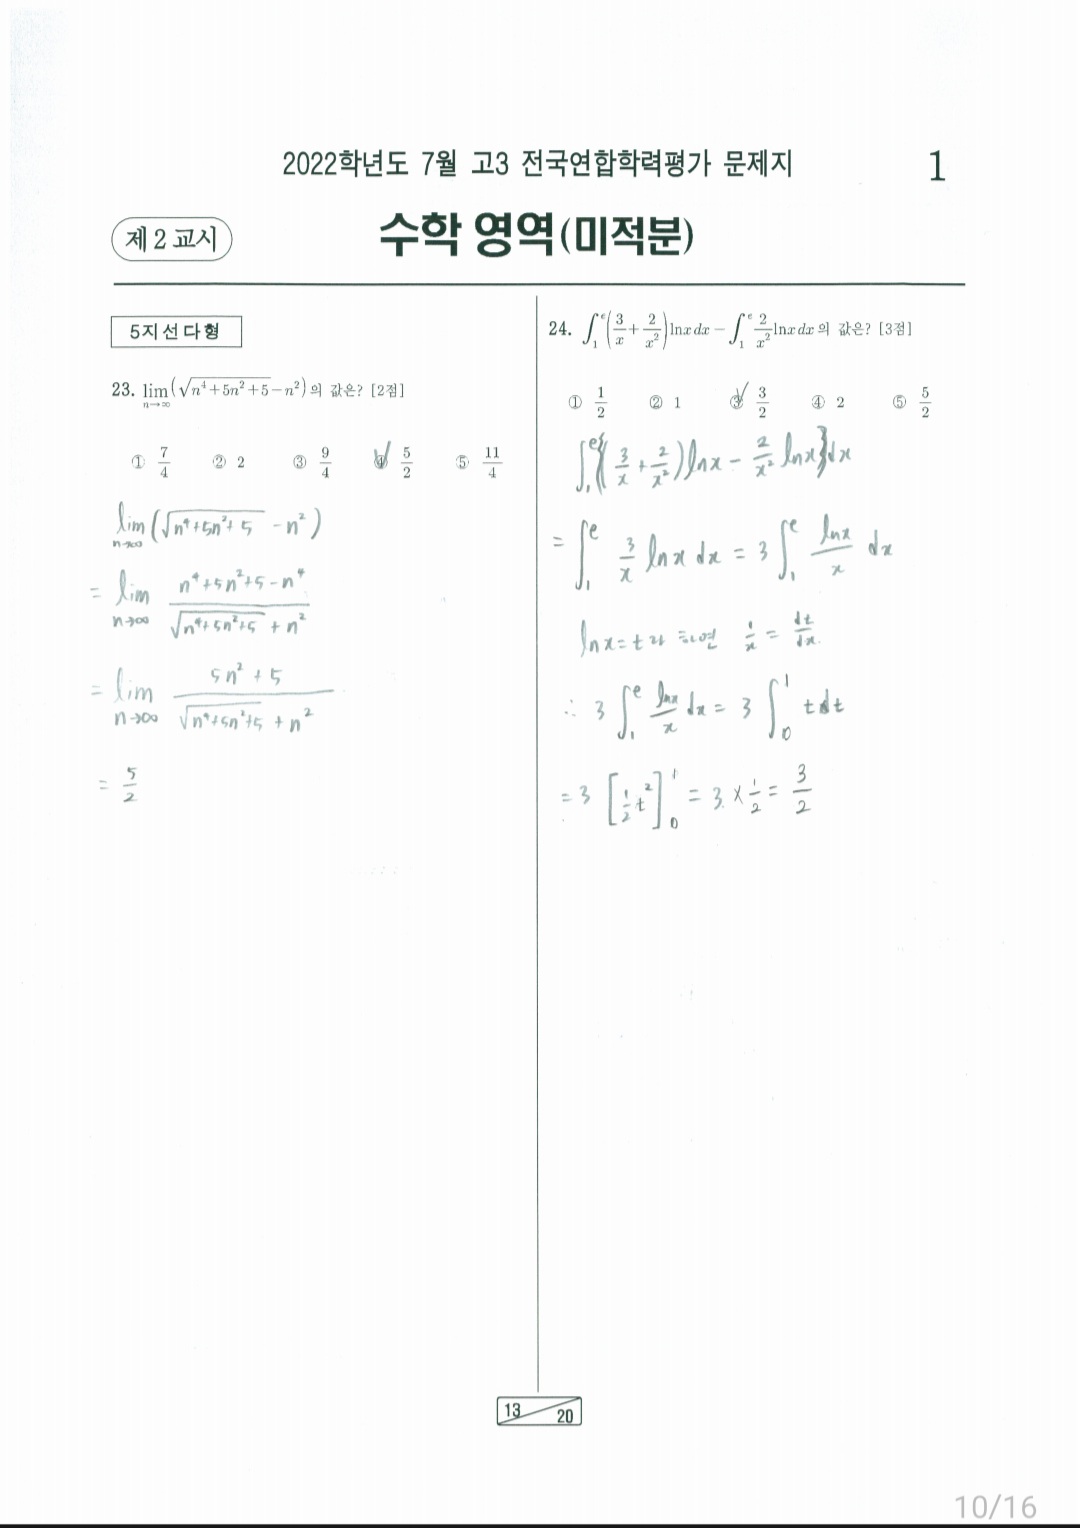 2022학년도 7월 고3 전국연합학력평가 문제지
1
제 2 교시
수학 영역(미적분)
5지선다형
23. lim_{n→∞}(√(n⁴+5n²+5)−n²)의 값은? [2점]
① 7/4 ② 2 ③ 9/4 ④ 5/2 ⑤ 11/4
lim_{n→∞} (√(n⁴+5n²+5) − n²)
= lim_{n→∞} (n⁴+5n²+5−n⁴)/(√(n⁴+5n²+5) + n²)
= lim_{n→∞} (5n²+5)/(√(n⁴+5n²+5) + n²)
= 5/2
24. ∫₁^e (3/x + 2/x²) ln x dx − ∫₁^e 2/x² ln x dx의 값은? [3점]
① 1/2 ② 1 ③ 3/2 ④ 2 ⑤ 5/2
∫₁^e {(3/x + 2/x²) ln x − 2/x² ln x} dx
= ∫₁^e 3/x ln x dx = 3 ∫₁^e (ln x)/x dx
ln x = t라 하면 1/x = dt/dx
∴ 3 ∫₁^e (ln x)/x dx = 3 ∫₀^1 t dt
= 3 [1/2 t²]₀^1 = 3 × 1/2 = 3/2
13 20
10/16